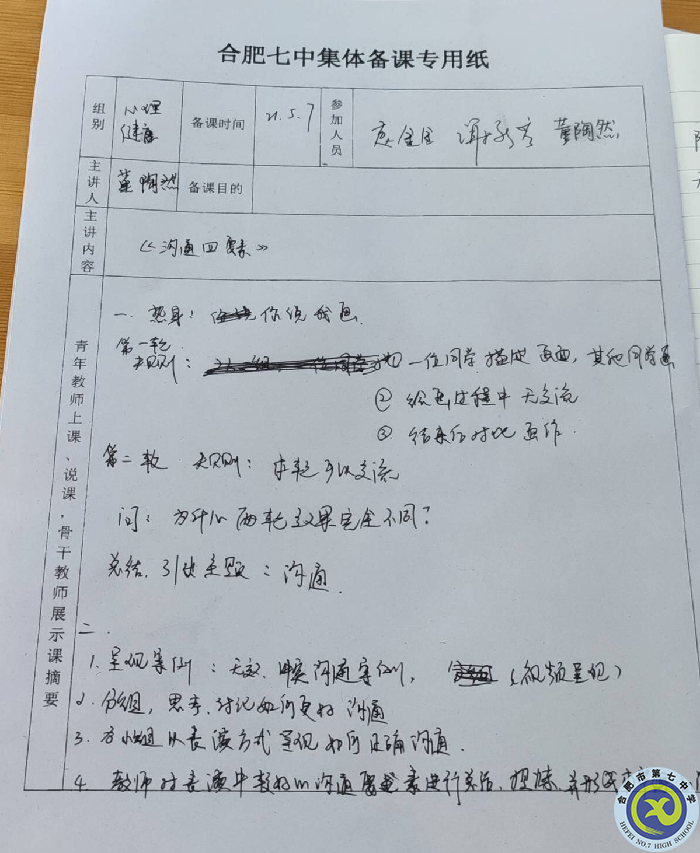 合肥七中集体备课专用纸
组别 心理健康 备课时间 21.5.7 参加人员 董陶然
主讲人 董陶然 备课目的
主讲内容 《沟通四要素》
青年教师上课、说课,骨干教师展示课摘要
一. 热身: 你说我画.
第一轮
规则: 一位同学描述画面, 其他同学画
② 绘画过程中无交流
③ 结束后对比画作.
第二轮 规则: 本轮可以交流
问: 为什么两轮效果完全不同?
总结. 引出主题: 沟通.
二.
1. 呈现案例: 无效 沟通案例, (视频呈现)
2. 分组, 思考. 讨论如何更好沟通
3. 各小组以表演方式呈现如何正确沟通.
4. 教师对表演中较好的沟通要素进行总结. 提炼. 并形成
合肥市第七中学
HEFEI NO.7 HIGH SCHOOL